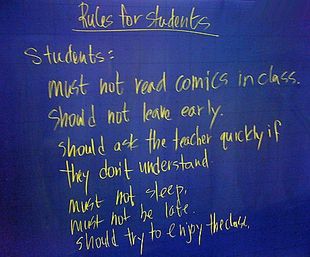 Rules for students
Students:
must not read comics in class.
should not leave early.
should ask the teacher quickly if
they don't understand.
must not sleep.
must not be late.
should try to enjoy the class.